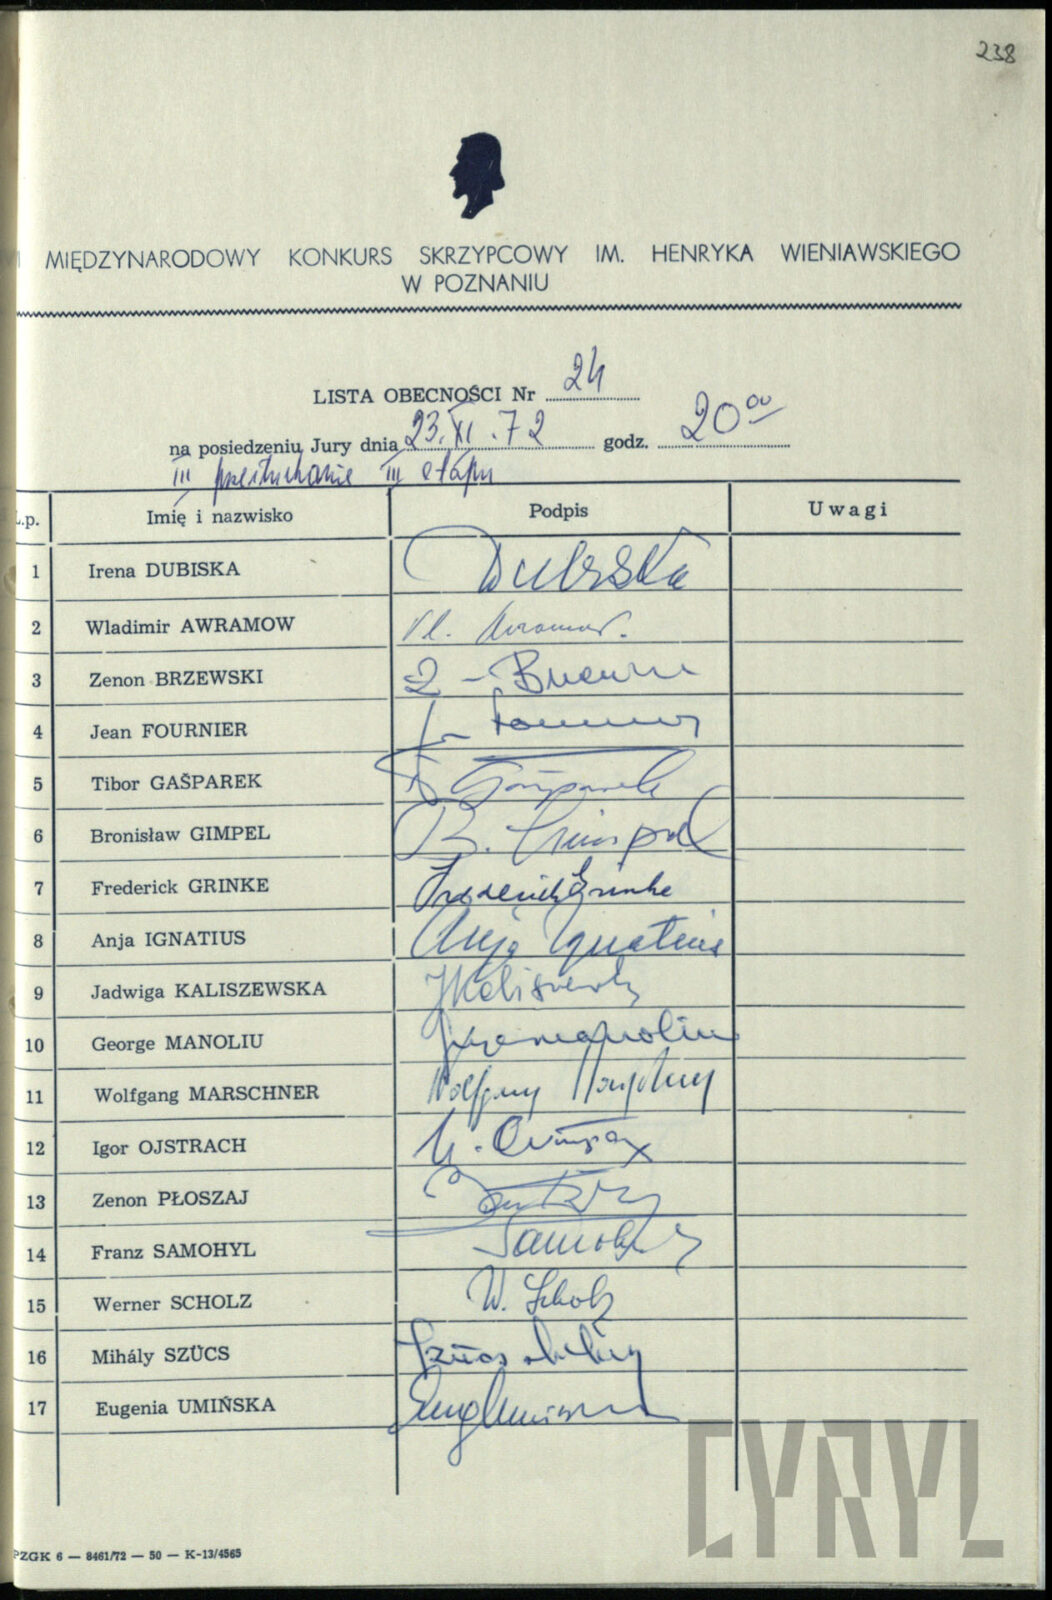 238
VI MIĘDZYNARODOWY KONKURS SKRZYPCOWY IM. HENRYKA WIENIAWSKIEGO
W POZNANIU
LISTA OBECNOŚCI Nr 24
na posiedzeniu Jury dnia 23.XI.72 godz. 20 00
III przesłuchanie III etapu
L.p. Imię i nazwisko Podpis Uwagi
1 Irena DUBISKA Dubiska
2 Wladimir AWRAMOW Vl. Avramov.
3 Zenon BRZEWSKI Z-
4 Jean FOURNIER
5 Tibor GAŠPAREK T Gašparek
6 Bronisław GIMPEL B. Gimpel
7 Frederick GRINKE Frederick Grinke
8 Anja IGNATIUS Anja Ignatius
9 Jadwiga KALISZEWSKA JKaliszewska
10 George MANOLIU George Manoliu
11 Wolfgang MARSCHNER Wolfgang Marschner
12 Igor OJSTRACH
13 Zenon PŁOSZAJ
14 Franz SAMOHYL Samohyl
15 Werner SCHOLZ W. Scholz
16 Mihály SZÜCS Szücs Mihály
17 Eugenia UMIŃSKA Eug Umińska
PZGK 6 — 8461/72 — 50 — K-13/4565
CYRYL